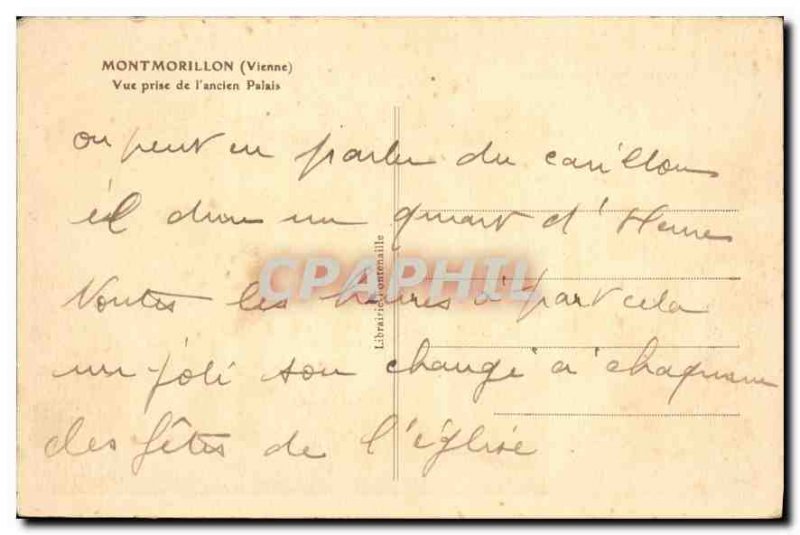 MONTMORILLON (Vienne)
Vue prise de l'ancien Palais
on peut en parler du carillon
il dure un quart d'Heure
Librairie Fontenaille
CPAPHIL
toutes les heures à part cela
un joli son change à chacune
des fêtes de l'église